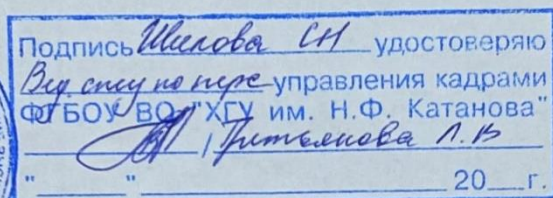 Подпись Шилова СН удостоверяю
Вед спец по перс управления кадрами
ФГБОУ ВО "ХГУ им. Н.Ф. Катанова"
/ Л.В
"___"______________ 20___г.